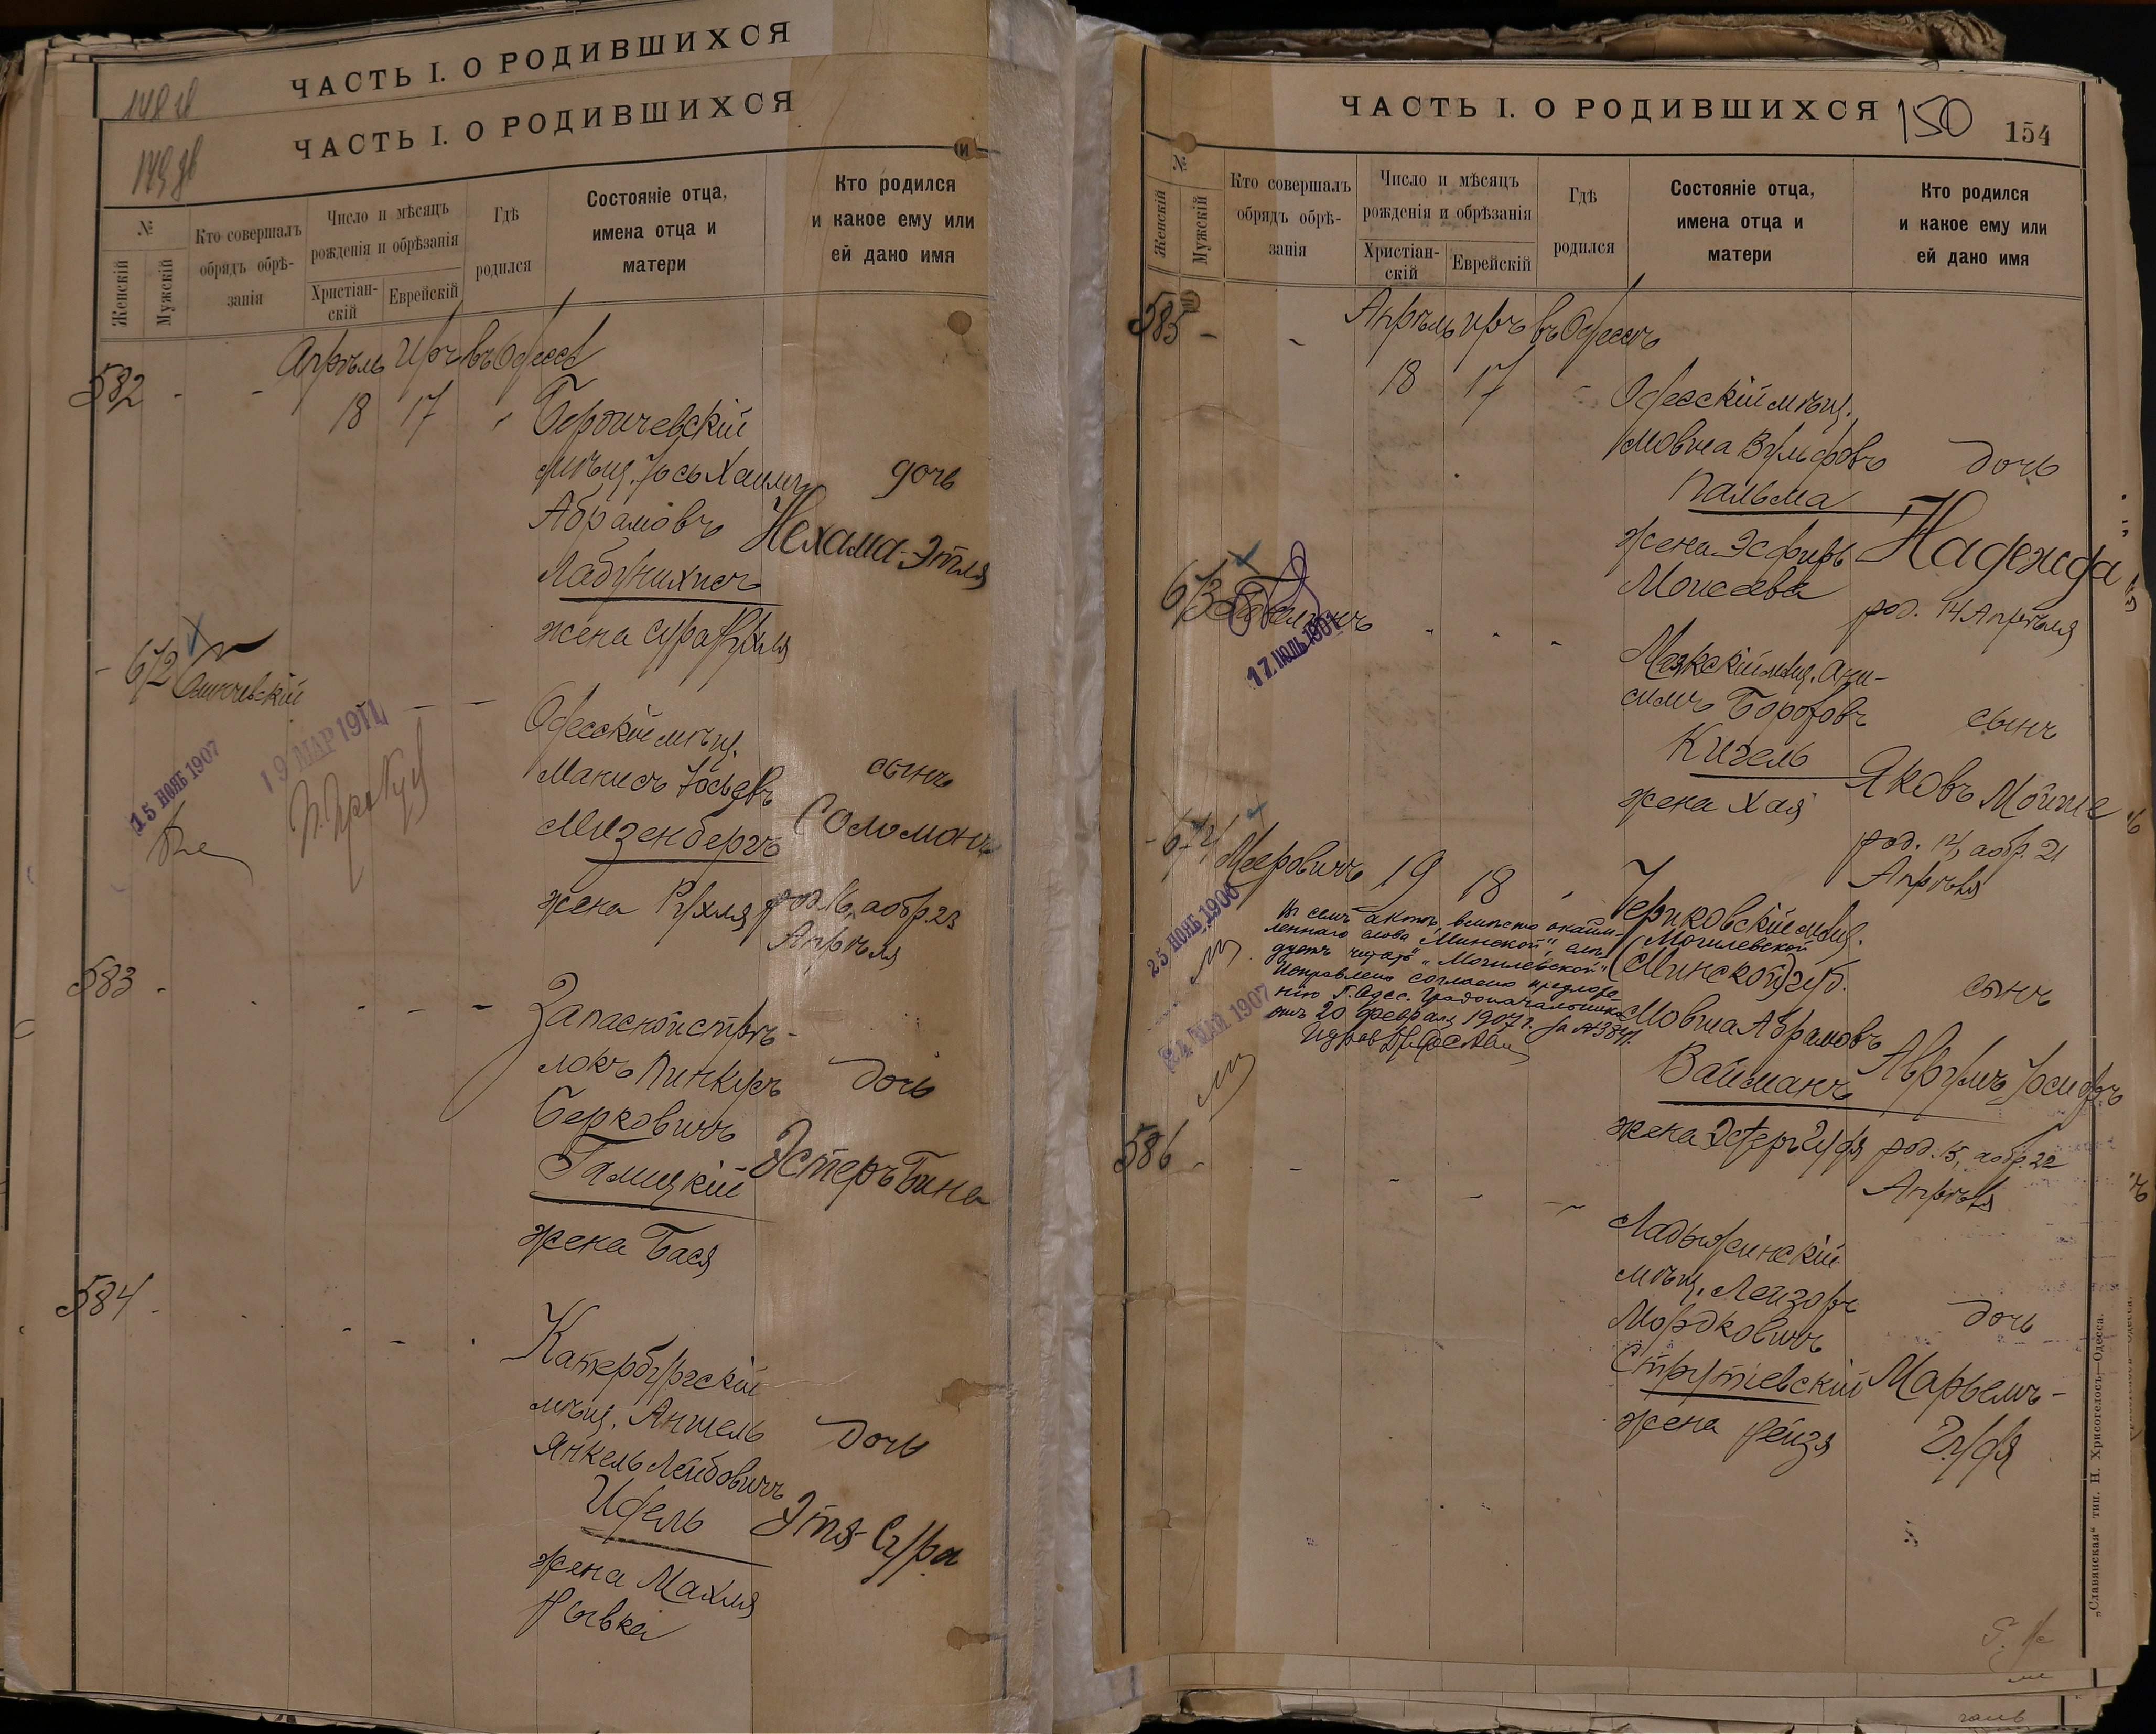 ЧАСТЬ I. О РОДИВШИХСЯ
ЧАСТЬ I. О РОДИВШИХСЯ
№
Женскій
Мужскій
Кто совершалъ
обрядъ обрѣ-
занія
Число и мѣсяцъ
рожденія и обрѣзанія
Христіан-
скій
Еврейскій
Гдѣ
родился
Состояніе отца,
имена отца и
матери
Кто родился
и какое ему или
ей дано имя
Апрѣль Иръ въ Одессѣ
582
18 17
Бердичевскій
мѣщ. Іось Хаимъ
Абрамовъ
жена Сура Рухля
дочь
Нехама-Этля
672
19 МАР 1911
15 НОЯБ 1907
Одесскій мѣщ.
Манисъ Іосьевъ
Мизенбергъ
жена Рухля
сынъ
Соломонъ
род. 16, а обр. 23
Апрѣля
583
Запасной стрѣ-
локъ Пинкусъ
Берковичъ
Галицкій
жена Бася
дочь
Эстеръ Бина
584
Катербургскій
мѣщ. Аншель
Янкель Лейбовичъ
Идель
жена Махля
Рывка
дочь
Этя-Сура
ЧАСТЬ I. О РОДИВШИХСЯ
150
154
№
Женскій
Мужскій
Кто совершалъ
обрядъ обрѣ-
занія
Число и мѣсяцъ
рожденія и обрѣзанія
Христіан-
скій
Еврейскій
Гдѣ
родился
Состояніе отца,
имена отца и
матери
Кто родился
и какое ему или
ей дано имя
585
Апрѣль Иръ въ Одессѣ
18 17
Одесскій мѣщ.
Мовша Вульфовъ
Пальма
жена Эсфирь
Моисеева
дочь
Надежда
род. 14 Апрѣля
673
17 ІЮЛЬ 1907
Маякскій мѣщ. Ани-
симъ Боруховъ
Кигель
жена Хая
сынъ
Яковъ Мойше
род. 14, а обр. 21
Апрѣля
674
Мееровичъ
19 18
25 НОЯБ 1906
24 МАЙ 1907
Въ семъ актѣ, вмѣсто окайм-
леннаго слова "Минской", слѣ-
дуетъ читать "Могилевской".
Исправлено согласно предложе-
нію Г. Одес. Градоначальника
отъ 20 февраля 1907 г. за №
Чериковскій мѣщ.
Могилевской
(Минской) губ.
Мовша Абрамовъ
Вайсманъ
жена Эстеръ Гудя
сынъ
Аврумъ Іосифъ
род. 15, а обр. 22
Апрѣля
586
Ладыжинскій
мѣщ. Лейзоръ
Мордковичъ
Струтіевскій
жена Рейзя
дочь
Марьемъ-
Гудя
„Славянская“ тип. Н. Хрисогелосъ.—Одесса.